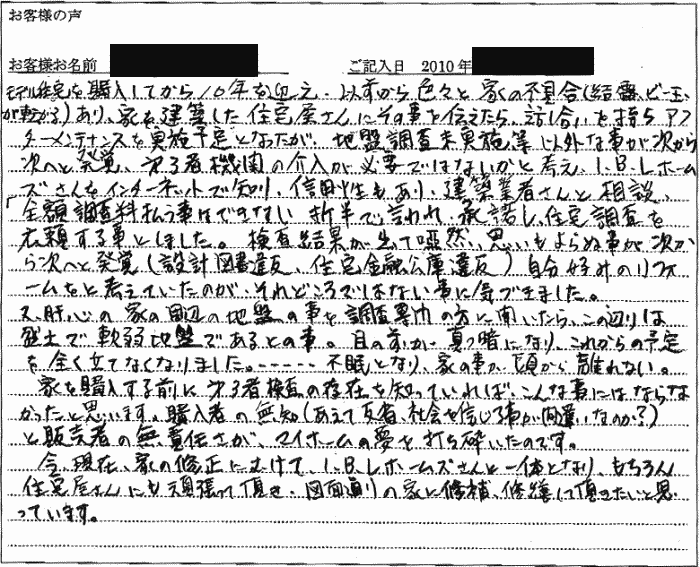 お客様の声
お客様お名前 ご記入日 2010年
モデル住宅を購入してから10年を迎え、以前から色々と家の不具合(結露、ビー玉
が転がる)あり、家を建築した住宅屋さんにその事を伝えたら、話し合いを持ちアフ
ターメンテナンスを実施予定となったが、地盤調査未実施等、以外な事が次から
次へと発覚、第3者機関の介入が必要ではないかと考え、I.B.Lホーム
ズさんをインターネットで知り、信用性もあり、建築業者さんと相談、
「全額調査料払う事はできない 折半で言われ、承諾し、住宅調査を
依頼する事としました。検査結果が出て唖然、思いもよらぬ事が次か
ら次へと発覚(設計図書違反、住宅金融公庫違反)自分好みのリフォ
ームをと考えていたのが、それどころではない事に気づきました。
又、肝心の家の周辺の地盤の事を調査専門の方に聞いたら、この辺りは
盛土で軟弱地盤であるとの事。目の前が真っ暗になり、これからの予定
を全く立てなくなりました。------不眠となり、家の事が頭から離れない。
家を購入する前に第3者検査の存在を知っていれば、こんな事にはならな
かったと思います。購入者の無知(あえて反省、社会を信じる事が間違いなのか?)
と販売者の無責任さが、マイホームの夢を打ち砕いたのです。
今、現在、家の修正にむけて、I.B.Lホームズさんと一体となり、もちろん
住宅屋さんにも頑張って頂き、図面通りの家と修補、修繕して頂きたいと思
っています。